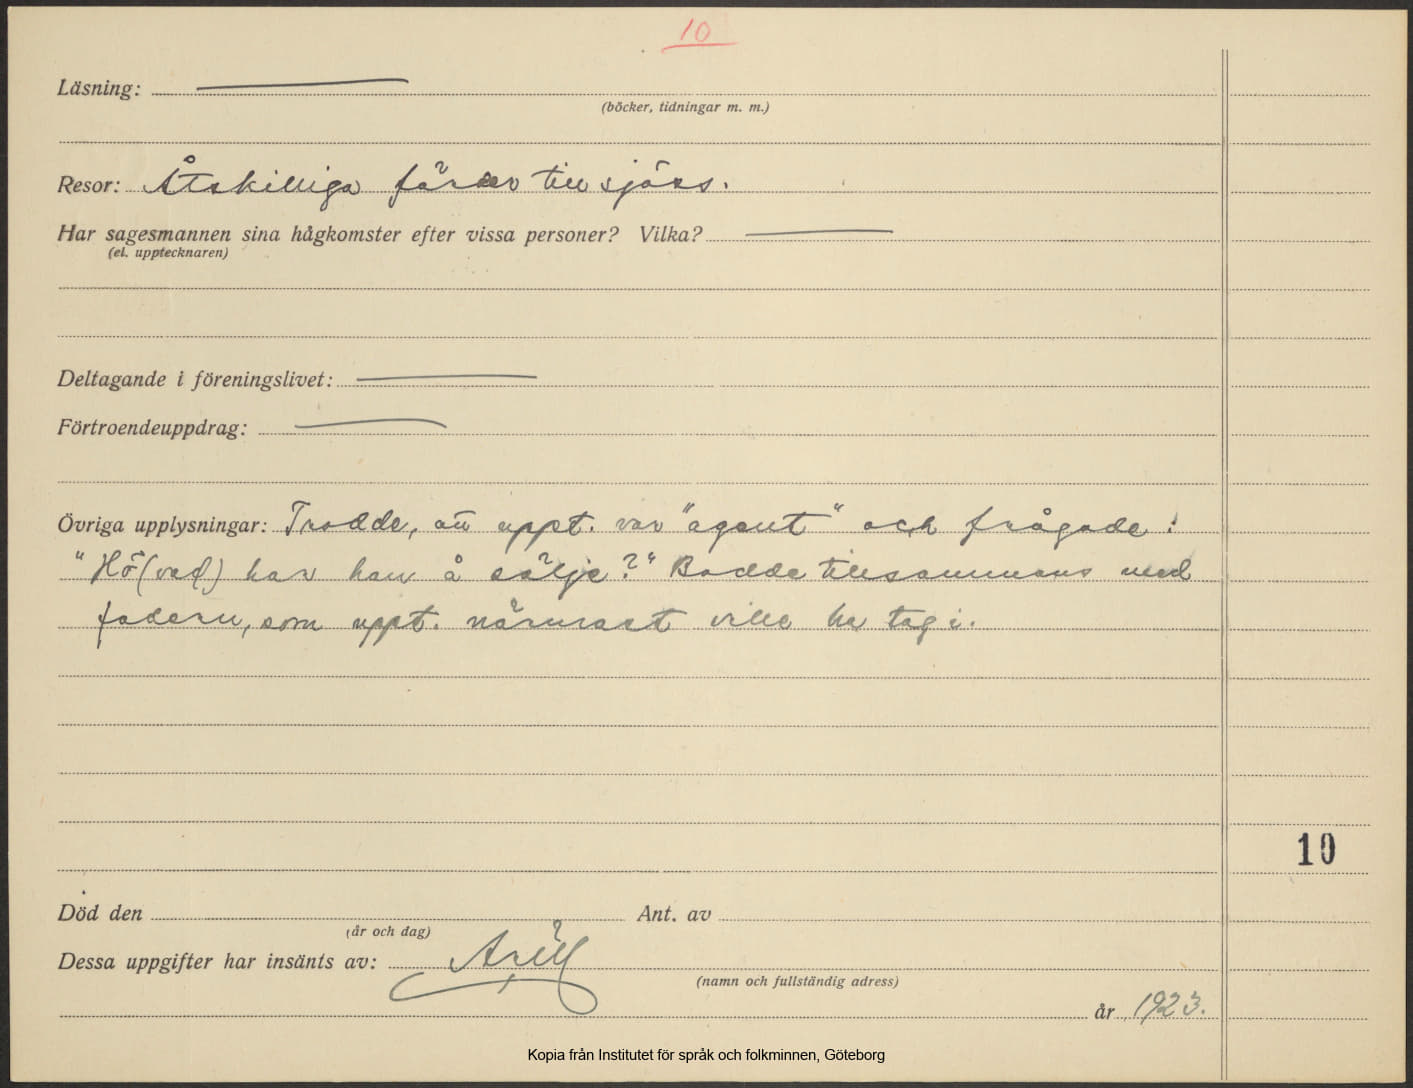 10
Läsning:
(böcker, tidningar m. m.)
Resor: Åtskilliga färder till sjöss.
Har sagesmannen sina hågkomster efter vissa personer? Vilka?
(el. upptecknaren)
Deltagande i föreningslivet:
Förtroendeuppdrag:
Övriga upplysningar: Trodde, att uppt. var "agent" och frågade:
"Hö (vad) har han å sälje?" Bodde tillsammans med
fadern, som uppt. närmast ville ha tag i.
10
Död den Ant. av
(år och dag)
Dessa uppgifter har insänts av:
(namn och fullständig adress)
år 1923.
Kopia från Institutet för språk och folkminnen, Göteborg